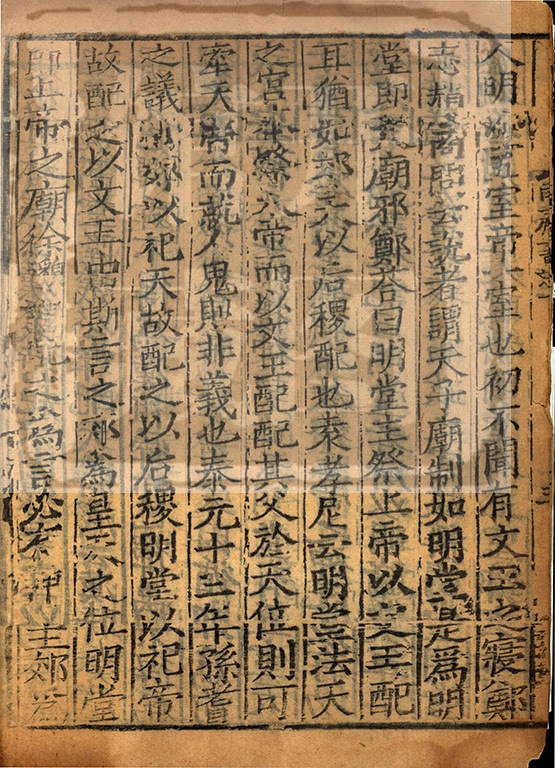 明堂五室帝一室也初不聞有文王之寢鄭
志趙商問云說者謂天子廟制如明堂是爲明
堂即文廟邪鄭荅曰明堂主祭上帝以文王配
耳猶如郊天以后稷配也袁孝尼云明堂法天
之宮本祭天帝而以文王配配其父於天位則可
牽天帝而就人鬼則非義也泰元十三年孫耆
之議稱郊以祀天故配之以后稷明堂以祀帝
故配之以文王由斯言之郊爲皇天之位明堂
即上帝之廟徐邈謂配之爲言必有神主郊爲